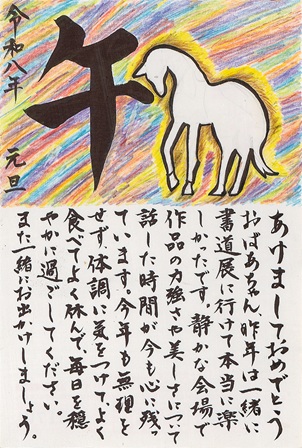 令和八年 元旦
午
あけましておめでとう
おばあちゃん、昨年は一緒に
書道展に行けて本当に楽
しかったです。静かな会場で
作品の力強さや美しさについて
話した時間が今も心に残っ
ています。今年も無理を
せず、体調に気をつけて、よく
食べてよく休んで、毎日を穏
やかに過ごしてください。
また一緒にお出かけしましょう。